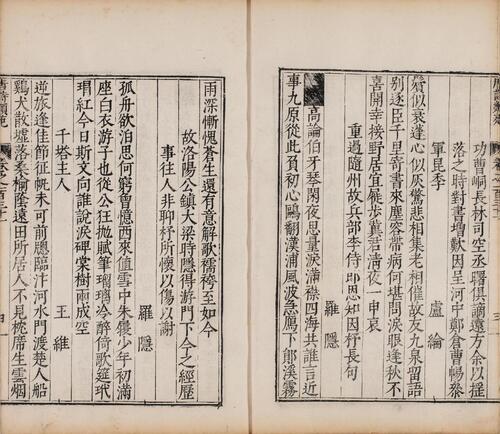 功曹峒長林司空丞曙俱謫遠方余以搖
落之時對書增歎因呈河中鄭倉曹暢參
軍昆季
盧綸
鬢似衰蓬心似灰驚悲相集老相催故友九泉留語
別逐臣千里寄書來塵容帶病何堪問淚眼逢秋不
喜開幸接野居宜屣步冀君清夜一申哀
重過隨州故兵部李侍郎恩知因抒長句
羅隱
高論伯牙琴閑夜思量淚滿襟四海共誰言近
事九原從此負初心鷗翻漢浦風波急鴈下郧溪霧
雨深慚愧蒼生還有意解歌襦袴至如今
故洛陽公鎮大梁時隱得游門下今之經歷
事往人非聊抒所懷以傷以謝
羅隱
孤舟欲泊思何窮曾憶西來值雪中朱履少年初滿
座白衣游子也從公狂拋賦筆琉璃冷醉倚歌筵玳
瑁紅今日斯文向誰說淚碑棠樹兩成空
千塔主人
王維
逆旅逢佳節征帆未可前牕臨汴河水門渡楚人船
鷄犬散墟落桑榆蔭遠田所居人不見枕席生雲烟